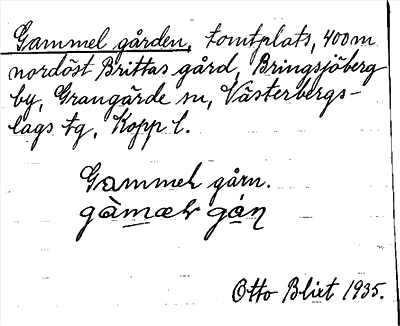 Gammel gården, tomtplats, 400 m
nordöst Brittas gård, Bringsjöberg
by, Grangärde sn, Västerbergs-
lags tg, Kopp l.
Gammeh gårn.
Otto Blixt 1935.